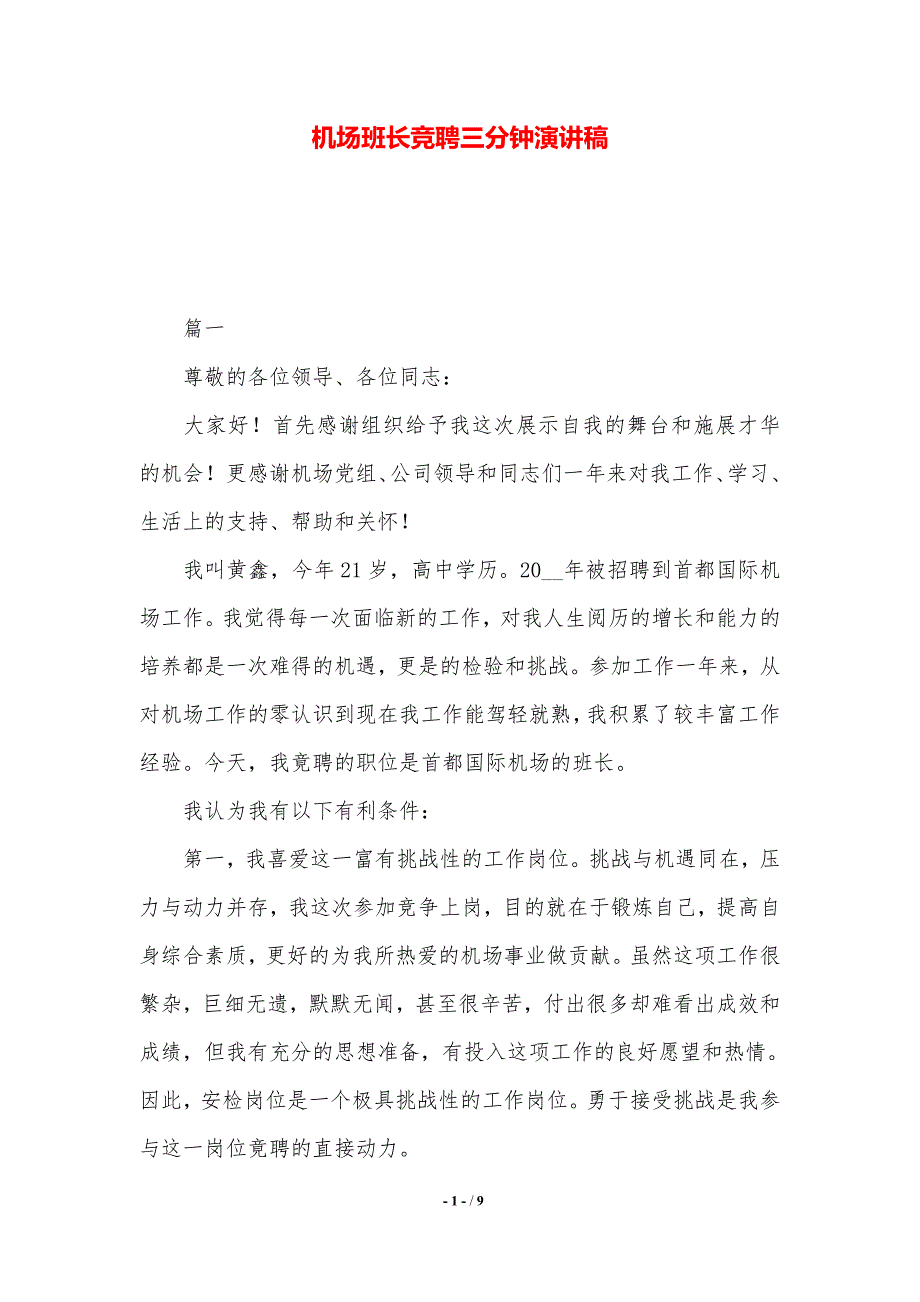 机场班长竞聘三分钟演讲稿
篇一
尊敬的各位领导、各位同志：
大家好！首先感谢组织给予我这次展示自我的舞台和施展才华
的机会！更感谢机场党组、公司领导和同志们一年来对我工作、学习、
生活上的支持、帮助和关怀！
我叫黄鑫，今年 21 岁，高中学历。20__年被招聘到首都国际机
场工作。我觉得每一次面临新的工作，对我人生阅历的增长和能力的
培养都是一次难得的机遇，更是的检验和挑战。参加工作一年来，从
对机场工作的零认识到现在我工作能驾轻就熟，我积累了较丰富工作
经验。今天，我竟聘的职位是首都国际机场的班长。
我认为我有以下有利条件：
第一，我喜爱这一富有挑战性的工作岗位。挑战与机遇同在，压
力与动力并存，我这次参加竞争上岗，目的就在于锻炼自己，提高自
身综合素质，更好的为我所热爱的机场事业做贡献。虽然这项工作很
繁杂，巨细无遗，默默无闻，甚至很辛苦，付出很多却难看出成效和
成绩，但我有充分的思想准备，有投入这项工作的良好愿望和热情。
因此，安检岗位是一个极具挑战性的工作岗位。勇于接受挑战是我参
与这一岗位竟聘的直接动力。
- 1 - / 9